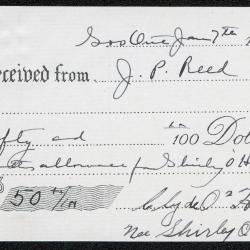 Soo Ont Jan 7th
eceived from J. P. Reed
fty and no/100 Dol
allowance for Shirley O H
$ 50 xx/100
Clyde O
Nee Shirley O